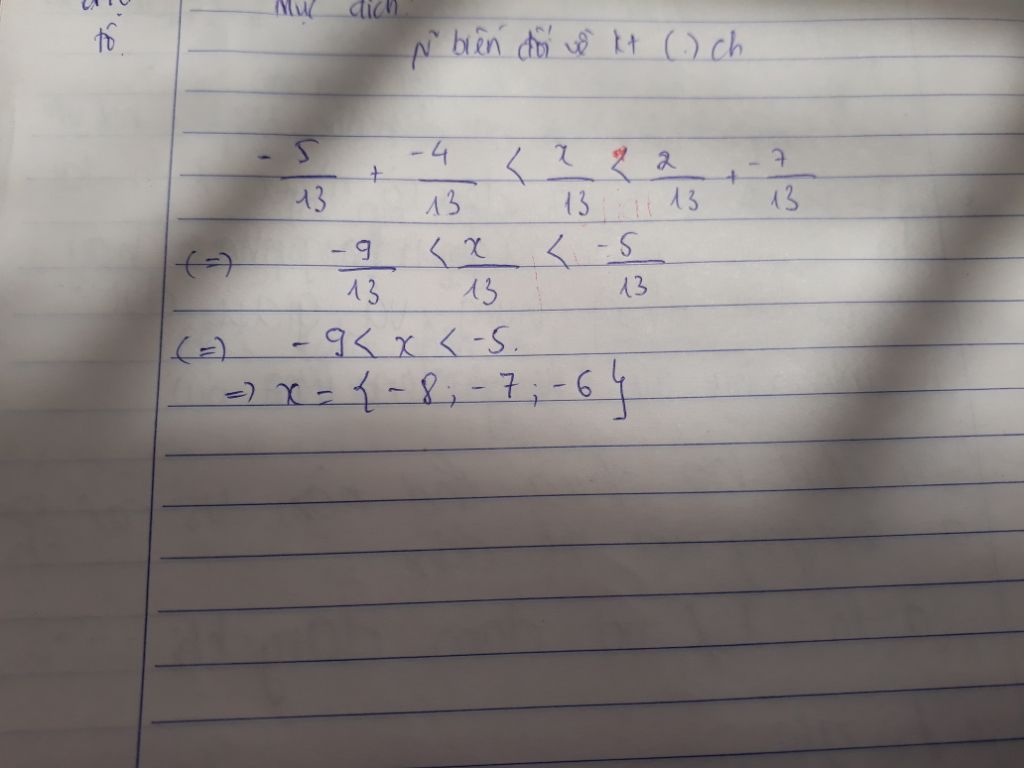 tố.
Mục đích.
biến đổi về kt (.) ch
- 5/13 + -4/13 < x/13 < 2/13 + -7/13
(=) -9/13 < x/13 < -5/13
(=) - 9 < x < -5.
=) x = { - 8; -7; -6 }